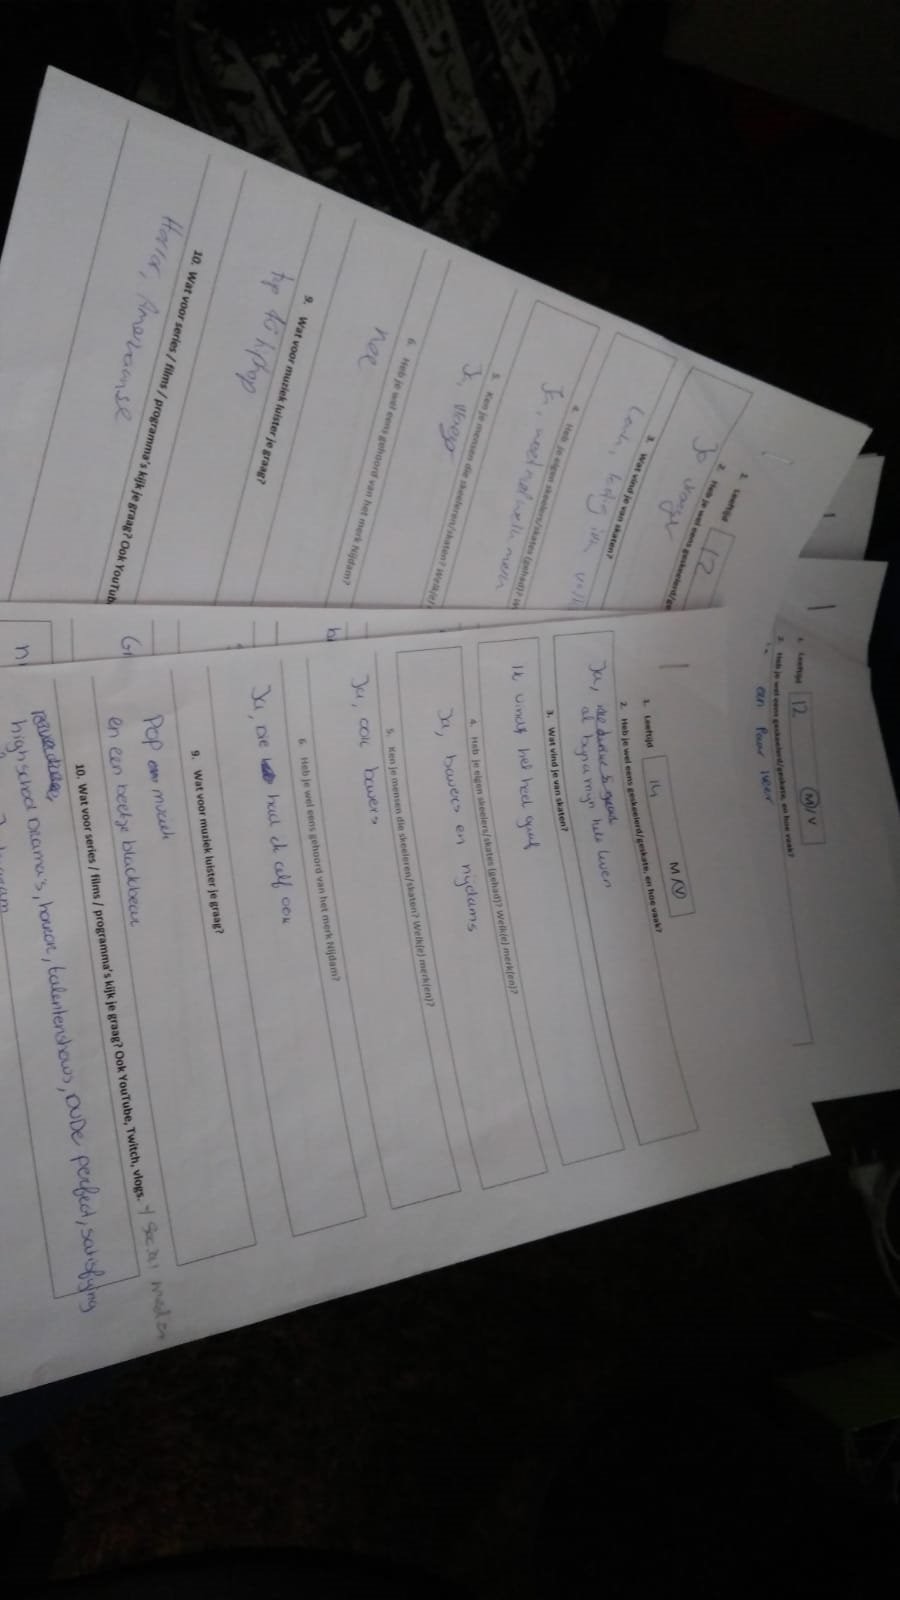 1. Leeftijd 12
2. Heb je wel eens geskeelerd/ge
Ja vroeger
3. Wat vind je van skaten?
Leuk,
4. Heb je eigen skeelers/skates (gehad)? W
Ja, weet niet welk merk
5. Ken je mensen die skeeleren/skaten? Welk(e)
Ja,
6. Heb je wel eens gehoord van het merk Nijdam?
nee
9. Wat voor muziek luister je graag?
hiphop
10. Wat voor series / films / programma's kijk je graag? Ook YouTub
Horror, Amerikaanse
1. Leeftijd 12 M/V
2. Heb je wel eens geskeelerd/geskate, en hoe vaak?
een paar keer
1. Leeftijd 14 M/V
2. Heb je wel eens geskeelerd/geskate, en hoe vaak?
Ja,
al bijna mijn hele leven
3. Wat vind je van skaten?
Ik vindt het heel gaaf
4. Heb je eigen skeelers/skates (gehad)? Welk(e) merk(en)?
Ja, bauers en nijdams
5. Ken je mensen die skeeleren/skaten? Welk(e) merk(en)?
Ja, ook bauers
6. Heb je wel eens gehoord van het merk Nijdam?
Ja, die had ik zelf ook
9. Wat voor muziek luister je graag?
Pop muziek
en een beetje blackbear
10. Wat voor series / films / programma's kijk je graag? Ook YouTube, Twitch, vlogs. + social media
highschool Drama's, horror, talentenshows, DUDE perfect, satisfying